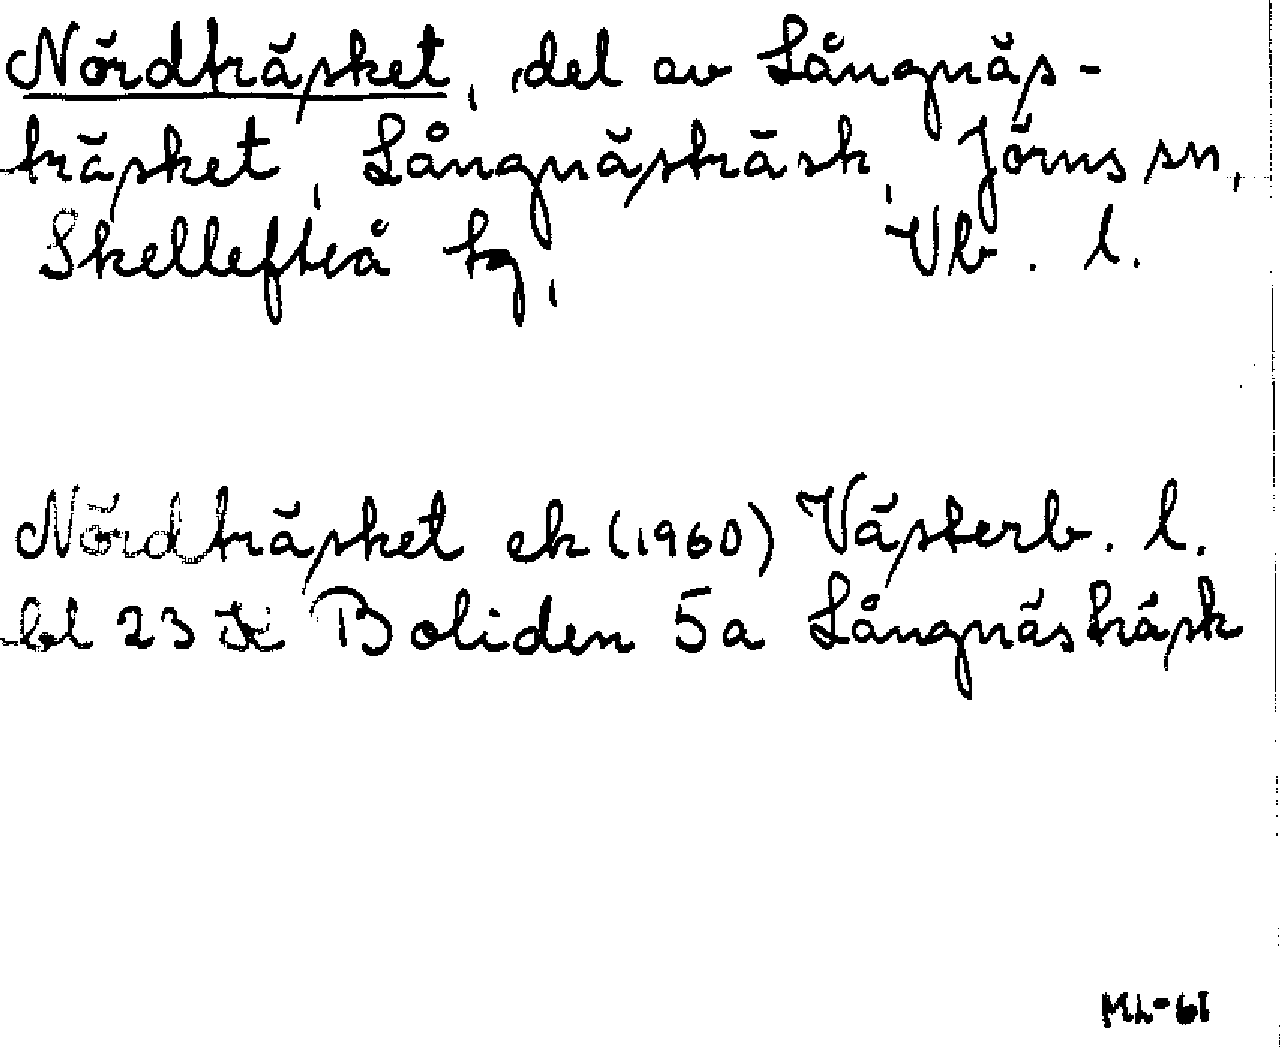 Nördträsket, del av Långnäs-
träsket, Långnästräsk, Jörns sn,
Skellefteå tg, Vb. l.
Nördträsket ek (1960) Västerb. l.
bl 23 K Boliden 5a Långnästräsk
ML-61